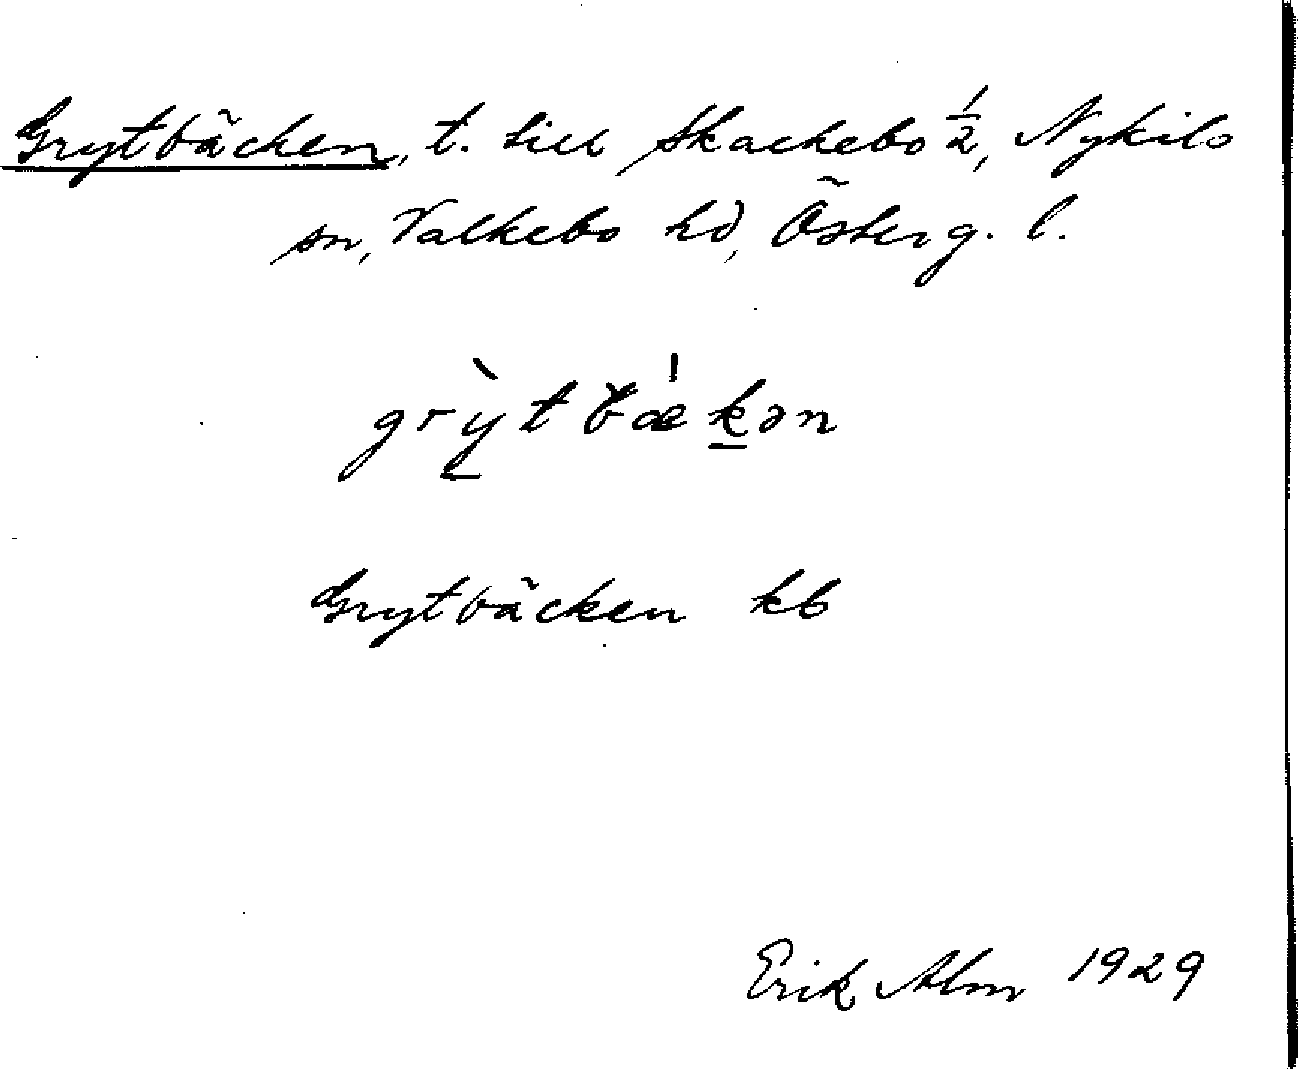 Grytbäcken, t. till Skackebo 1/2, Nykils
sn, Valkebo hd, Österg. l.
grỳtbǽkən
Grytbäcken kb
Erik Alm 1929